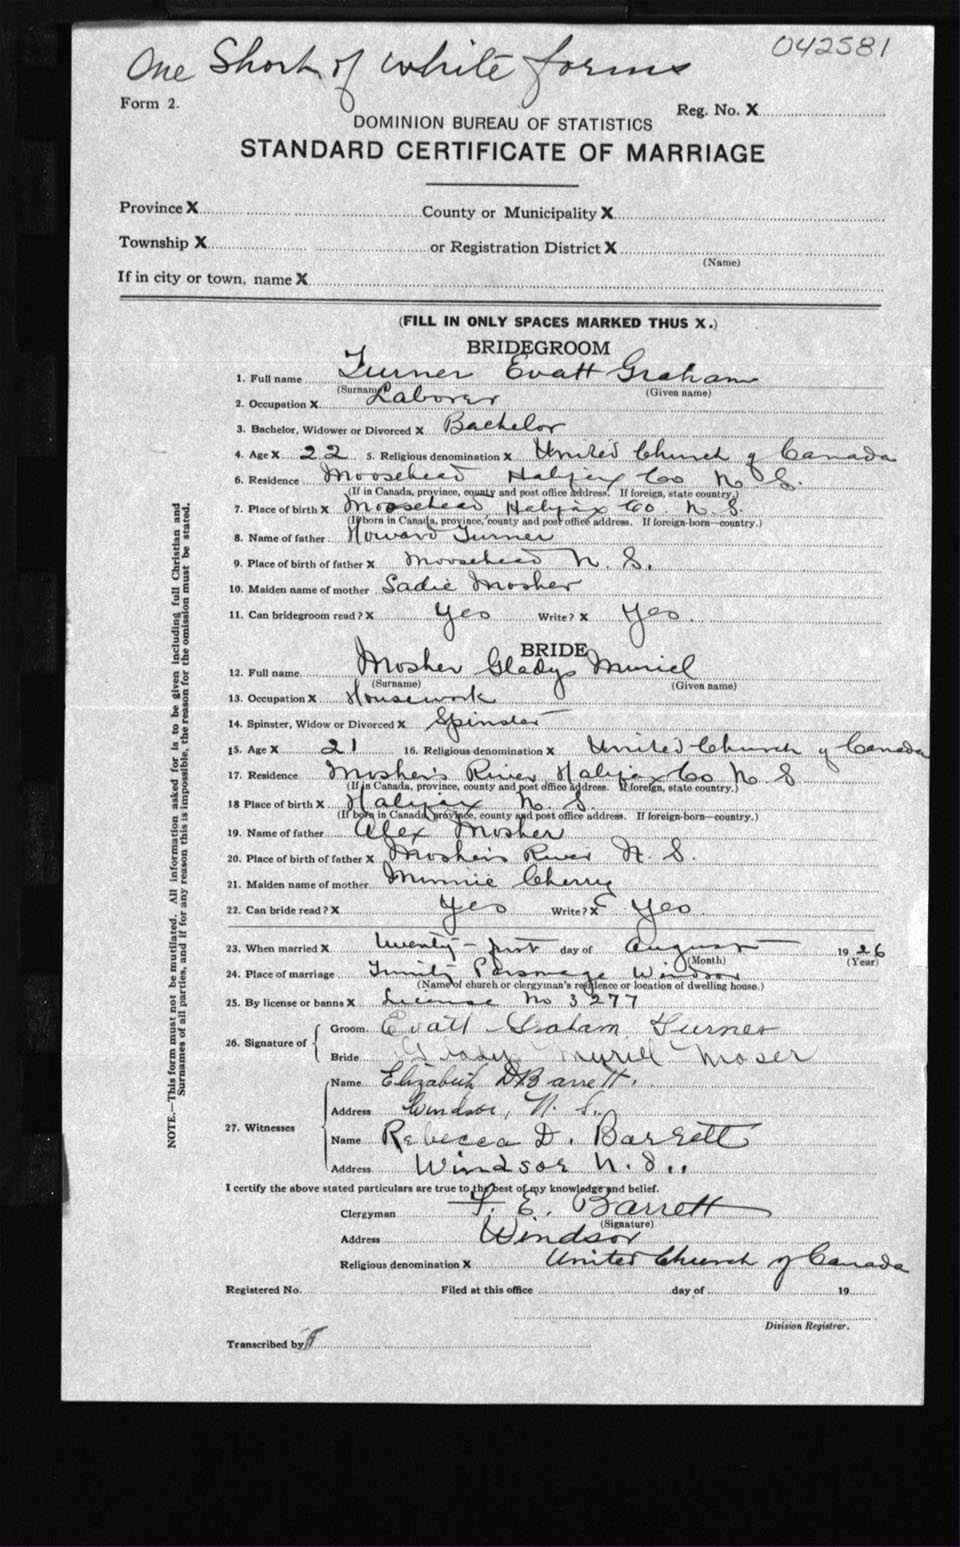 One Short of white forms
042581
Form 2.
Reg. No. X
DOMINION BUREAU OF STATISTICS
STANDARD CERTIFICATE OF MARRIAGE
Province X County or Municipality X
Township X or Registration District X
(Name)
If in city or town, name X
(FILL IN ONLY SPACES MARKED THUS X.)
BRIDEGROOM
1. Full name Turner Evatt Graham
(Surname) (Given name)
2. Occupation X Laborer
3. Bachelor, Widower or Divorced X Bachelor
4. Age X 22 5. Religious denomination X United Church of Canada
6. Residence Moosehead Halifax Co N. S.
(If in Canada, province, county and post office address. If foreign, state country.)
7. Place of birth X Moosehead Halifax Co. N. S.
(If born in Canada, province, county and post office address. If foreign-born—country.)
8. Name of father Howard Turner
9. Place of birth of father X Moosehead N. S.
10. Maiden name of mother Sadie Mosher
11. Can bridegroom read? X Yes Write? X Yes.
BRIDE
12. Full name Mosher Gladys Muriel
(Surname) (Given name)
13. Occupation X Housework
14. Spinster, Widow or Divorced X Spinster
15. Age X 21 16. Religious denomination X United Church of Canada
17. Residence Mosher's River Halifax Co N. S
(If in Canada, province, county and post office address. If foreign, state country.)
18 Place of birth X Halifax N. S.
(If born in Canada, province, county and post office address. If foreign-born—country.)
19. Name of father Alex Mosher
20. Place of birth of father X Mosher's River N. S.
21. Maiden name of mother Minnie Cherry
22. Can bride read? X Yes Write? X Yes
23. When married X twenty-first day of August 1926
(Month) (Year)
24. Place of marriage Trinity Parsonage Windsor
(Name of church or clergyman's residence or location of dwelling house.)
25. By license or banns X License No 3277
26. Signature of
Groom Evatt Graham Turner
Bride Gladys Myrill Moser
27. Witnesses
Name Elizabeth D Barrett.
Address Windsor, N. S.
Name Rebecca D. Barrett
Address Windsor N. S..
I certify the above stated particulars are true to the best of my knowledge and belief.
Clergyman F. E. Barrett
(Signature)
Address Windsor
Religious denomination X United Church of Canada
Registered No. Filed at this office day of 19
Division Registrar.
Transcribed by
NOTE.—This form must not be mutilated. All information asked for is to be given including full Christian and
Surnames of all parties, and if for any reason this is impossible, the reason for the omission must be stated.